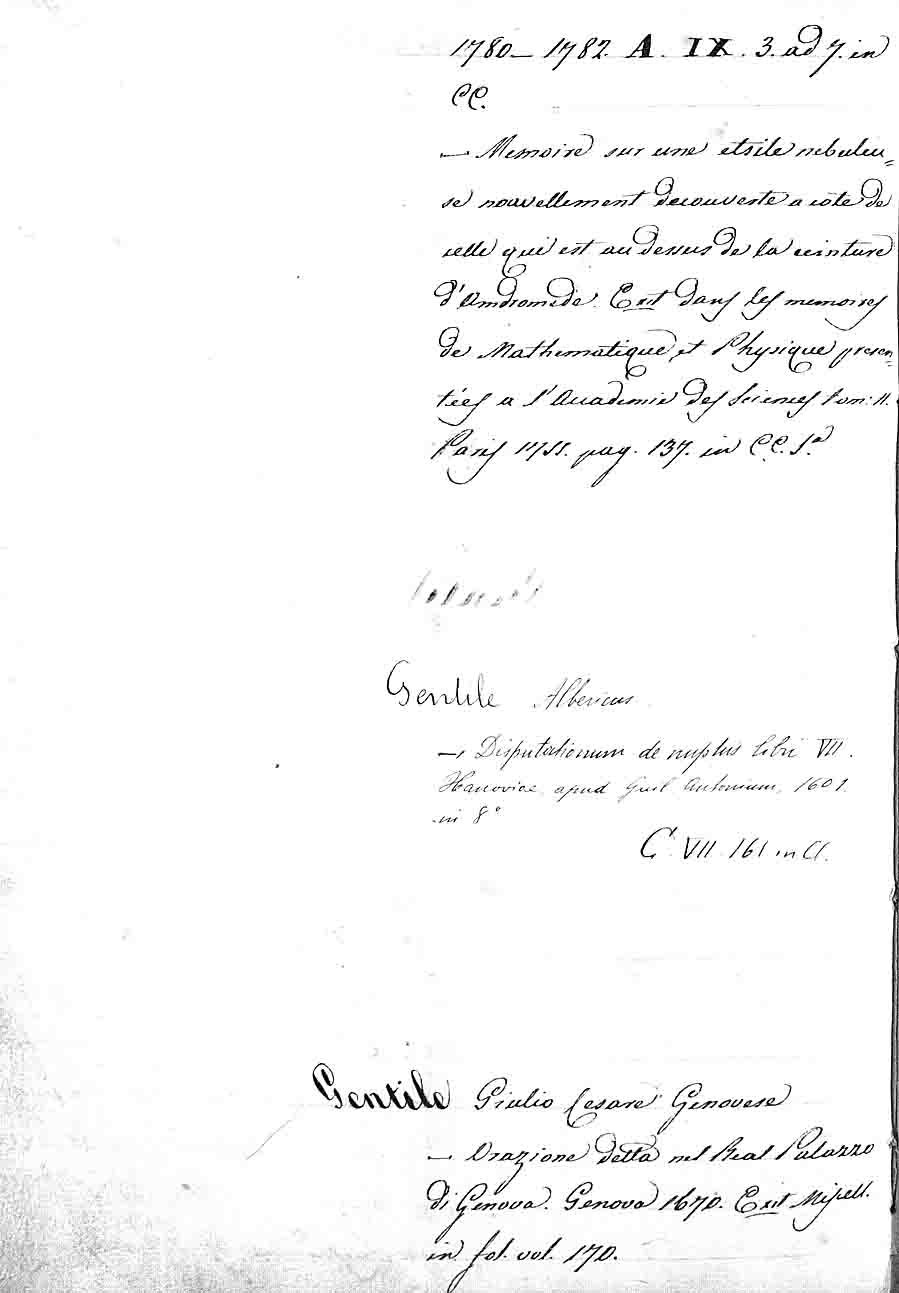 1780 – 1782. A. IX. 3. ad 7. in
CC.
— Memoire sur une etoile nebuleu=
se nouvellement decouverte a côte de
celle qui est au dessus de la ceinture
d'Andromede. Exit dans les memoires
de Mathematique et Physique presen=
tées a l'Academie des Sciences tom: II.
Paris 1755. pag. 137. in CC. S.a
Gentile Albericus
— Disputationum de nuptiis libri VII.
Hanoviae, apud Guil. Antonium, 1601.
in 8°
C. VII. 161 in Cl.
Gentile Giulio Cesare Genovese
— Orazione detta nel Real Palazzo
di Genova. Genova 1670. Exit Miscell.
in fol. vol. 170.